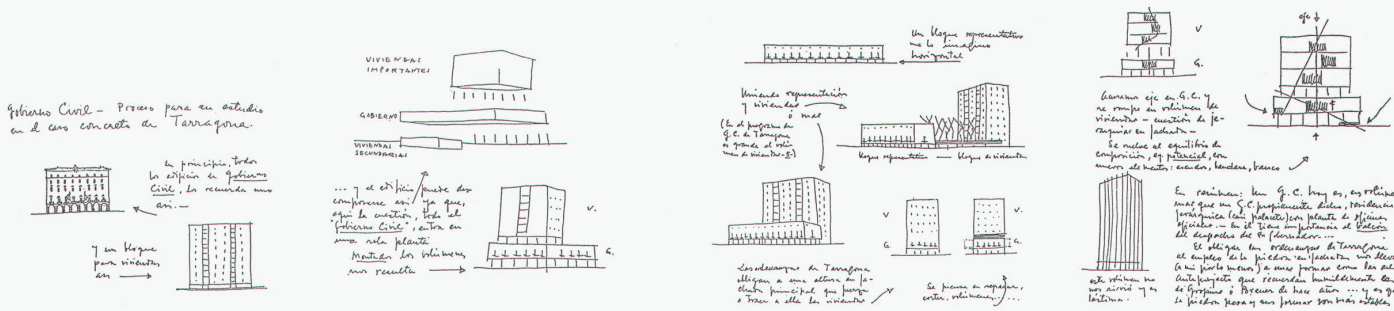 Gobierno Civil — Proceso para su estudio
en el caso concreto de Tarragona.
En principio, todos
los edificios de Gobierno
Civil, los recuerda uno
así. —
y un bloque
para viviendas
así
VIVIENDAS
IMPORTANTES
GOBIERNO
VIVIENDAS
SECUNDARIAS
... y el edificio puede des
componerse así ya que,
aquí la cuestión, todo el
"Gobierno Civil", entra en
una sola planta
Montados los volúmenes
nos resulta
V.
G.
Un bloque representativo
me lo imagino
horizontal
Uniendo representación
y viviendas
ó más
(En el programa de
G.C. de Tarragona
es grande el volú
men de viviendas
bloque representativo — bloque de viviendas
Las ordenanzas de Tarragona
obligan a una altura en fa-
chada principal que
o traer a ella las viviendas
V
V
G.
G.
Se piensa en separar,
cortar, volúmenes ...
V
G.
eje
eje en G.C. y
se rompe en volúmen de
viviendas — cuestión de je-
rarquías en fachada —
Se vuelve al equilibrio de
composición, eq. potencial, con
nuevos elementos: escudos, bandera, banco
este volúmen no
nos sirvió y es
lástima.
En resúmen: Un G.C. hoy es, en volúmen
mas que un G.C. propiamente dicho, residencia
jerárquica (casi palacio) con planta de oficinas
oficiales. — En él tiene importancia el balcón
del despacho del Sr. Gobernador ...
El obligar las ordenanzas de Tarragona
al empleo de la piedra en fachadas nos lleva
(a mí por lo menos) a unas formas como las del
anteproyecto que recuerdan humildemente las
de Gropius ó de hace años ... y es que
la piedra pesa y sus formas son más estables